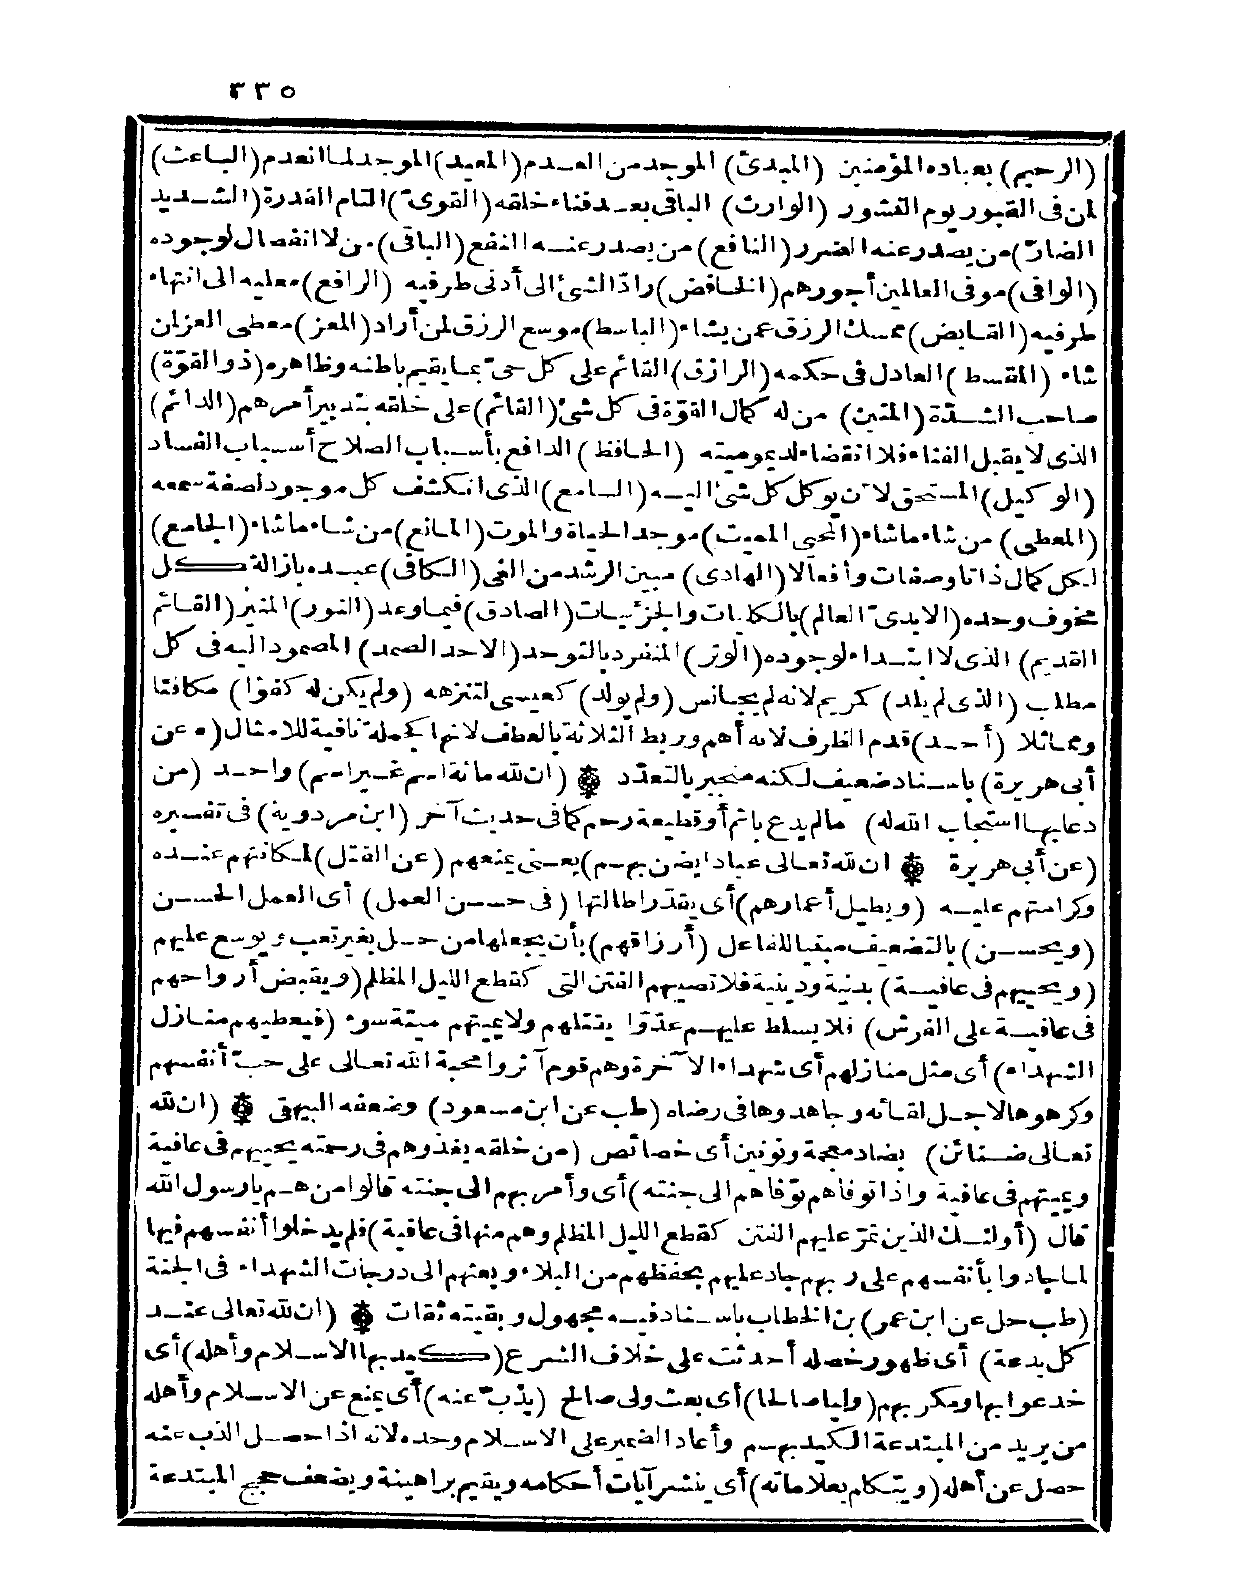 ٣٣٥
(الرحيم) بعباده المؤمنين (المبدئ) الموجد من العدم (المعيد) الموجد لما انعدم (الباعث)
لمن فى القبور يوم النشور (الوارث) الباقى بعد فناء خلقه (القوىّ) التام القدرة (الشديد
الضارّ) من يصدر عنه الضرر (النافع) من يصدر عنه النفع (الباقى) من لا انفصال لوجوده
(الوافى) موفى العالمين أجورهم (الخافض) رادّ الشئ الى أدنى طرفيه (الرافع) معليه الى انتهاء
طرفيه (القابض) ممسك الرزق عمن يشاء (الباسط) موسع الرزق لمن أراد (المعز) معطى العز لمن
شاء (المقسط) العادل فى حكمه (الرازق) القائم على كل حىّ بما يقيم باطنه وظاهره (ذو القوّة)
صاحب الشدّة (المتين) من له كمال القوّة فى كل شئ (القائم) على خلقه بتدبير أمرهم (الدائم)
الذى لا يقبل الفناء فلا انقضاء لديموميته (الحافظ) الدافع بأسباب الصلاح أسباب الفساد
(الوكيل) المستحق لان يوكل كل شئ اليه (السامع) الذى انكشف كل موجود لصفة سمعه
(المعطى) من شاء ماشاء (المحيى المميت) موجد الحياة والموت (المانع) من شاء ماشاء (الجامع)
لكل كمال ذاتا وصفات وأفعالا (الهادى) مبين الرشد من الغى (الكافى) عبده بازالة كل
مخوف وحده (الابدىّ العالم) بالكليات والجزئيات (الصادق) فيما وعد (النور) المنير (القائم
القديم) الذى لا ابتداء لوجوده (الوتر) المنفرد بالتوحد (الاحد الصمد) المصمود اليه فى كل
مطلب (الذى لم يلد) كمريم لانه لم يجانس (ولم يولد) كعيسى لتنزهه (ولم يكن له كفوا) مكافئا
ومماثلا (أحد) قدم الظرف لانه أهم وربط الثلاثة بالعطف لانها كجملة نافية للامثال (ه عن
أبى هريرة) باسناد ضعيف لكنه منجبر بالتعدّد ۞ (ان لله مائة اسم غير اسم) واحد (من
دعابها استجاب الله له) مالم يدع باثم أو قطيعة رحم كما فى حديث آخر (ابن مردوية) فى تفسيره
(عن أبى هريرة ۞ ان لله تعالى عبادا يضن بهم) يعنى يمنعهم (عن القتل) لمكانتهم عنده
وكرامتهم عليه (ويطيل أعمارهم) أى يقدّر اطالتها (فى حسن العمل) أى العمل الحسن
(ويحسن) بالتضعيف مبنيا للفاعل (أرزاقهم) بأن يجعلها من حل بغير تعب ويوسع عليهم
(ويحييهم فى عافية) بدنية ودينية فلا تصيبهم الفتن التى كقطع الليل المظلم (ويقبض أرواحهم
فى عافية على الفرش) فلا يسلط عليهم عدوّا يقتلهم ولا يميتهم ميتة سوء (فيعطيهم منازل
الشهداء) أى مثل منازلهم أى شهداء الآخرة وهم قوم آثروا محبة الله تعالى على حبّ أنفسهم
وكرهوها لاجل لقائه وجاهدوها فى رضاه (طب عن ابن مسعود) وضعفه البيهقى ۞ (ان لله
تعالى ضنائن) بضاد معجمة ونونين أى خصائص (من خلقه يغذوهم فى رحمته يحييهم فى عافية
ويميتهم فى عافية واذا توفاهم توّفاهم الى جنته) أى وأمر بهم الى جنته قالوا من هم يا رسول الله
قال (أولئك الذين تمرّ عليهم الفتن كقطع الليل المظلم وهم منها فى عافية) فلم يدخلوا أنفسهم فيها
لما جادوا بأنفسهم على ربهم جاد عليهم بحفظهم من البلاء ويعثهم الى درجات الشهداء فى الجنة
(طب حل عن ابن عمر) بن الخطاب باسناد فيه مجهول وبقيته ثقات ۞ (ان لله تعالى عند
كل بدعة) أى ظهور خصله أحدثت على خلاف الشرع (كيد بها الاسلام وأهله) أى
خدعوا بها ومكر بهم (وليا صالحا) أى بعث ولى صالح (يذبّ عنه) أى يمنع عن الاسلام وأهله
من يريد من المبتدعة الكيد بهم وأعاد الضمير على الاسلام وحده لانه اذا حصل الذب عنه
حصل عن أهله (ويتكلم بعلاماته) أى ينشر آيات أحكامه ويقيم براهينة ويضعف حجج المبتدعة